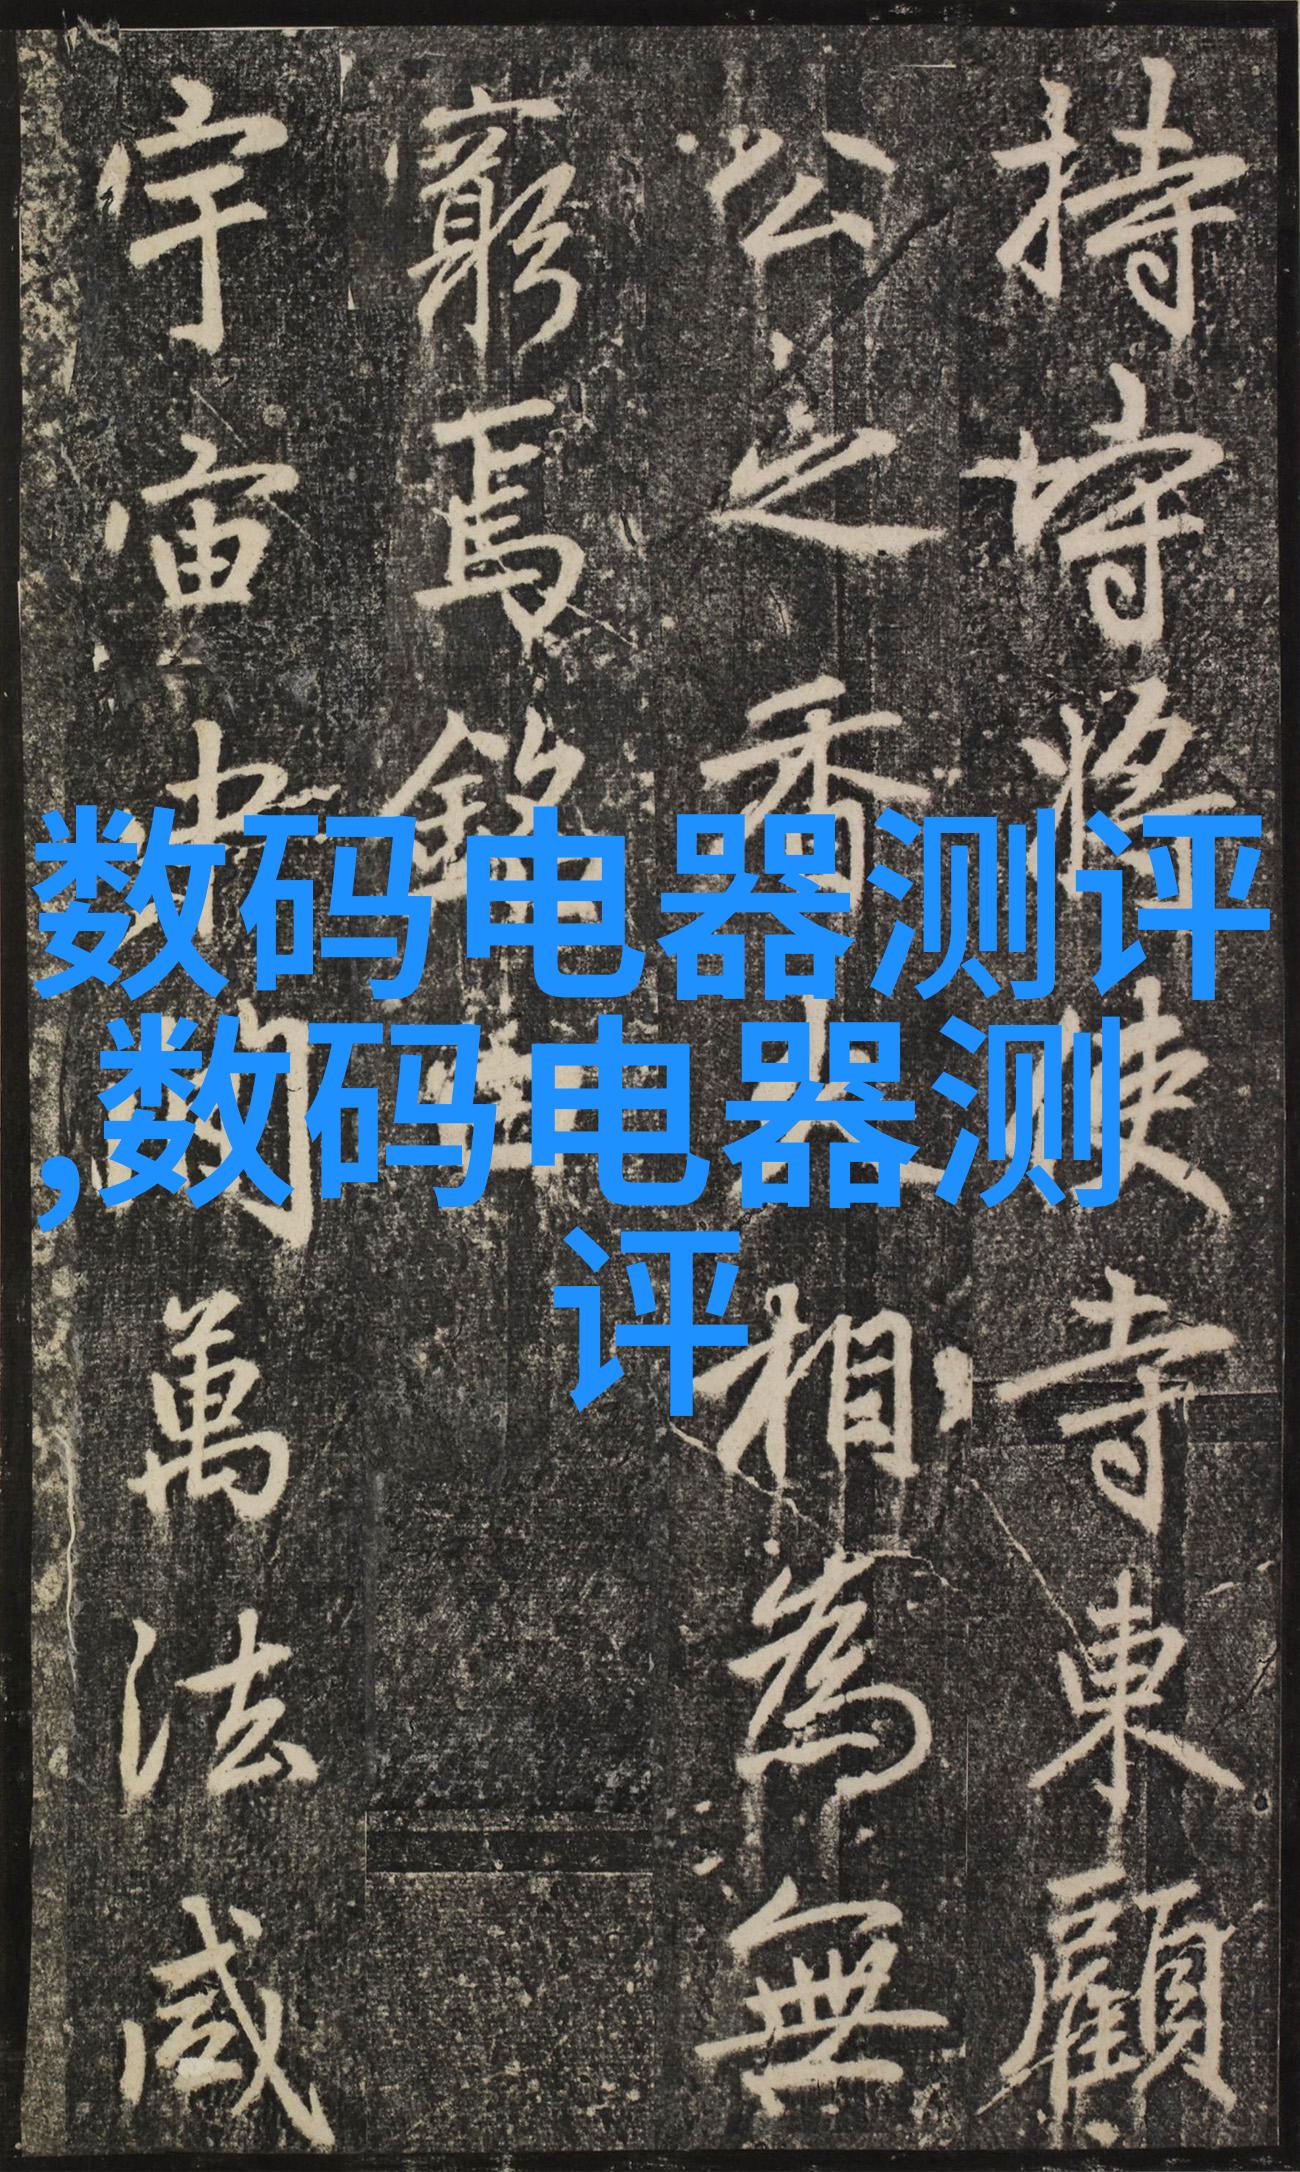 持守将使寺東顧
公之香火相為無
窮焉銘
宇宙萬法咸
数码电器测评
,数码电器测
评